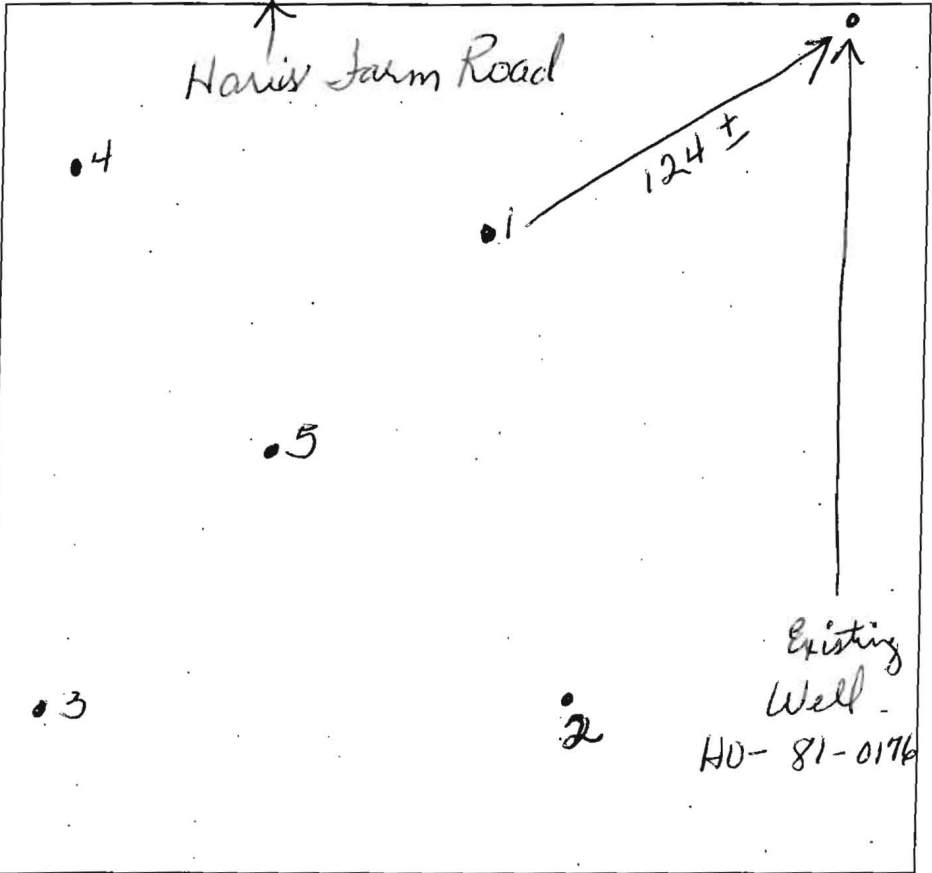 Haris Farm Road
4
1
124 ±
5
Existing
Well -
HO- 81-0176
3
2